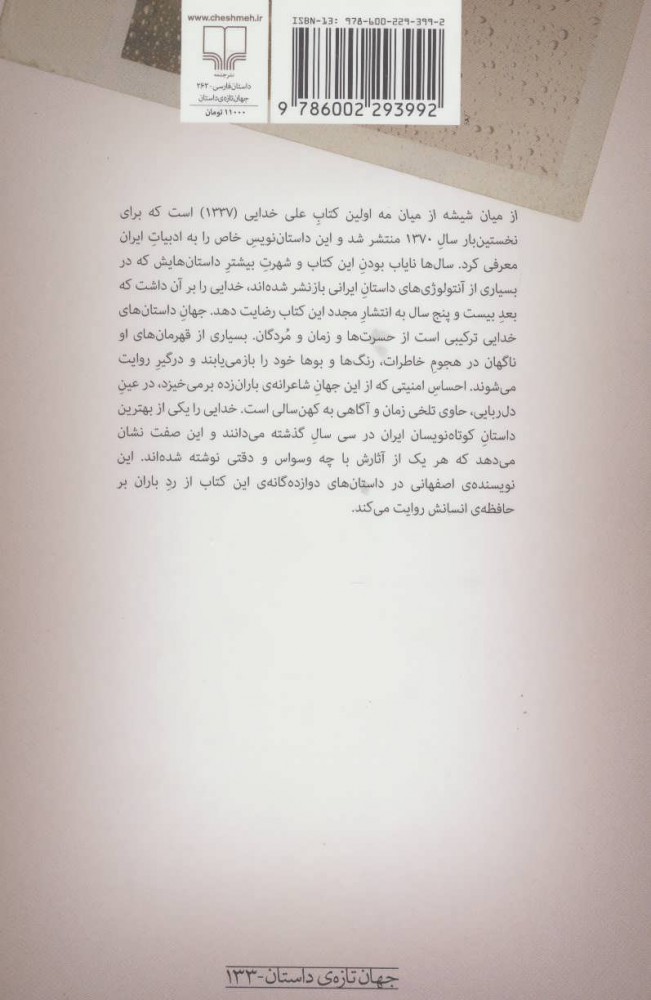 www.cheshmeh.ir
نشرچشمه
داستان فارسی-۲۶۲
جهان تازه‌ی داستان
۱۱۰۰۰ تومان
ISBN-13: 978-600-229-399-2
9 786002 293992
از میان شیشه از میان مه اولین کتابِ علی خدایی (۱۳۳۷) است که برای
نخستین‌بار سالِ ۱۳۷۰ منتشر شد و این داستان‌نویسِ خاص را به ادبیاتِ ایران
معرفی کرد. سال‌ها نایاب بودنِ این کتاب و شهرتِ بیشترِ داستان‌هایش که در
بسیاری از آنتولوژی‌های داستانِ ایرانی بازنشر شده‌اند، خدایی را بر آن داشت که
بعدِ بیست و پنج سال به انتشارِ مجدد این کتاب رضایت دهد. جهانِ داستان‌های
خدایی ترکیبی است از حسرت‌ها و زمان و مُردگان. بسیاری از قهرمان‌های او
ناگهان در هجومِ خاطرات، رنگ‌ها و بوها خود را بازمی‌یابند و درگیرِ روایت
می‌شوند. احساسِ امنیتی که از این جهانِ شاعرانه‌ی باران‌زده برمی‌خیزد، در عینِ
دل‌ربایی، حاوی تلخی زمان و آگاهی به کهن‌سالی است. خدایی را یکی از بهترین
داستانِ کوتاه‌نویسان ایران در سی سالِ گذشته می‌دانند و این صفت نشان
می‌دهد که هر یک از آثارش با چه وسواس و دقتی نوشته شده‌اند. این
نویسنده‌ی اصفهانی در داستان‌های دوازده‌گانه‌ی این کتاب از ردِ باران بر
حافظه‌ی انسانش روایت می‌کند.
جهان تازه‌ی داستان-۱۳۳